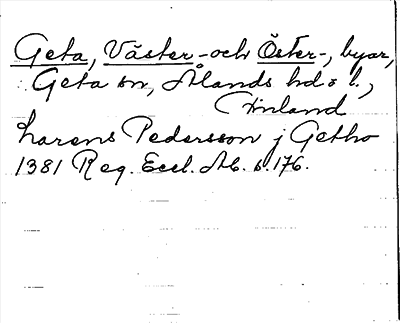 Geta, Väster- och Öster-, byar,
Geta sn, Ålands hd o l.,
Finland
Larens Pedersson j Getho
1381 Reg. Eccl. Ab. s. 176.